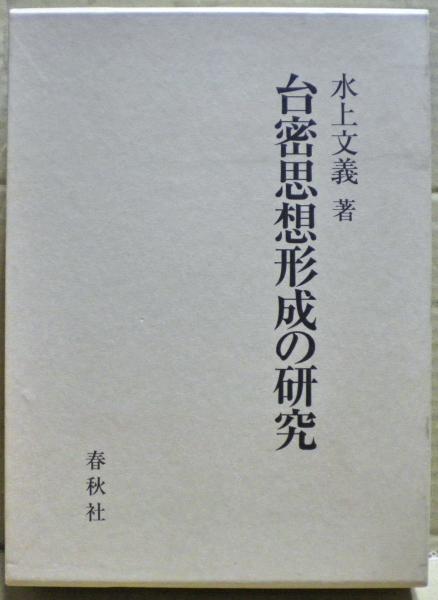 水上文義 著
台密思想形成の研究
春秋社